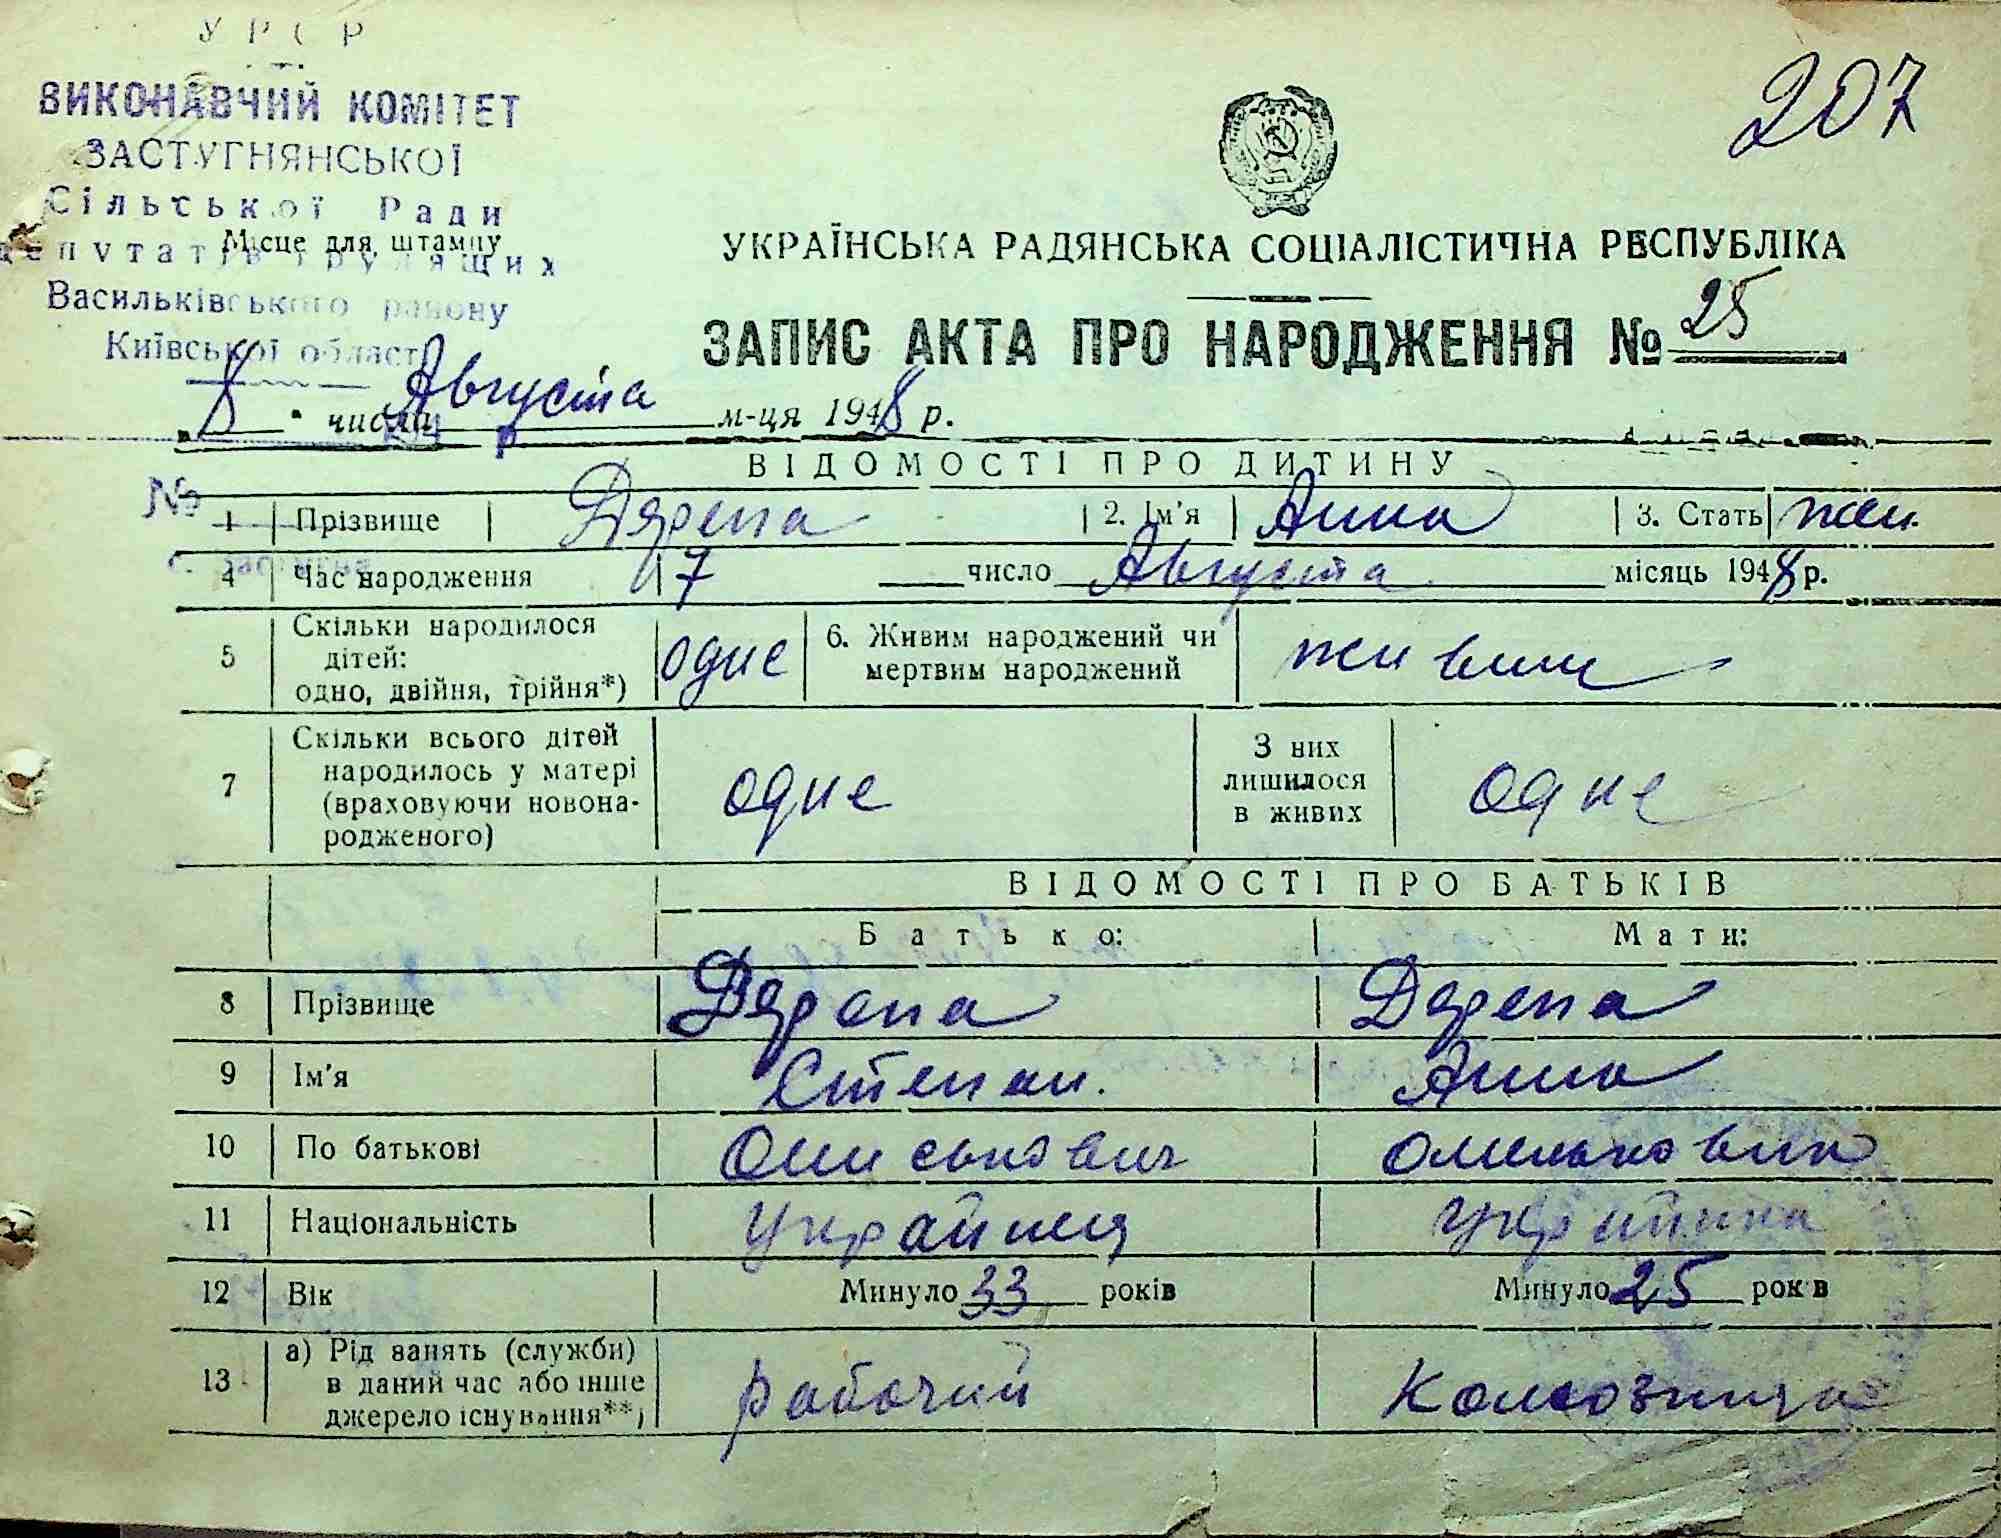 УРСР
ВИКОНАВЧИЙ КОМІТЕТ
ЗАСТУГНЯНСЬКОЇ
Сільської Ради
депутатів трудящих
Васильківського району
Київської області
Місце для штампу
207
УКРАЇНСЬКА РАДЯНСЬКА СОЦІАЛІСТИЧНА РЕСПУБЛІКА
ЗАПИС АКТА ПРО НАРОДЖЕННЯ № 25
„8" числа Августа м-ця 1948 р.
ВІДОМОСТІ ПРО ДИТИНУ
№
1 Прізвище Дярепа 2. Ім'я Анна 3. Стать жен.
4 Час народження 7 число Августа місяць 1948 р.
5 Скільки народилося дітей: одно, двійня, трійня*) одне 6. Живим народжений чи мертвим народжений живим
7 Скільки всього дітей народилось у матері (враховуючи новонародженого) одне З них лишилося в живих одне
ВІДОМОСТІ ПРО БАТЬКІВ
Батько: Мати:
8 Прізвище Дярепа Дярепа
9 Ім'я Степан. Анна
10 По батькові
11 Національність Українец Українка
12 Вік Минуло 33 років Минуло 25 років
13 а) Рід занять (служби) в даний час або інше джерело існування**) рабочий Колхозница